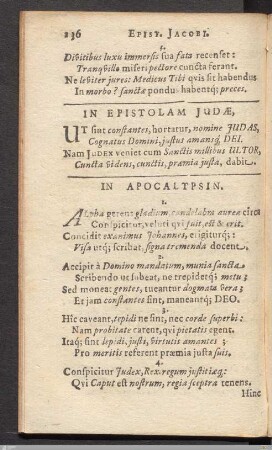 236 EPIST. JACOBI.
5.
Divitibus luxu immersis sua fata recenset:
Tranqvillo miseri pectore cuncta ferant.
Ne leviter jures: Medicus Tibi qvis sit habendus
In morbo? sancta pondus habentq; preces.
IN EPISTOLAM JUDÆ,
UT sint constantes, hortatur, nomine JUDAS,
Cognatus Domini, justus amansq; DEI.
Nam JUDEX veniet cum Sanctis millibus ULTOR,
Cuncta videns, cunctis, præmia justa, dabit.
IN APOCALYPSIN.
1.
Alpha gladium candelabra aurea circa
Conspicitur, veluti qvi fuit, est & erit.
Concidit exanimus Johannes, erigiturq;:
Visa utq; scribat, signa tremenda docent.
2.
Accipit à Domino mandatum, munia sancta
Scribendo ut subeat, ne trepidetq; metu;
Sed monea: gentes, tueantur dogmata vera;
Et jam constantes sint, maneantq; DEO.
3.
Hîc caveant, tepidi ne sint, nec corde superbi:
Nam probitate carent, qvi pietatis egent.
Itaq; sint lepidi, justi, virtutis amantes;
Pro meritis referent præmia justa suis.
4.
Conspicitur Judex, Rex regum justitiæq;:
Qvi Caput est nostrum, regia sceptra tenens.
Hinc